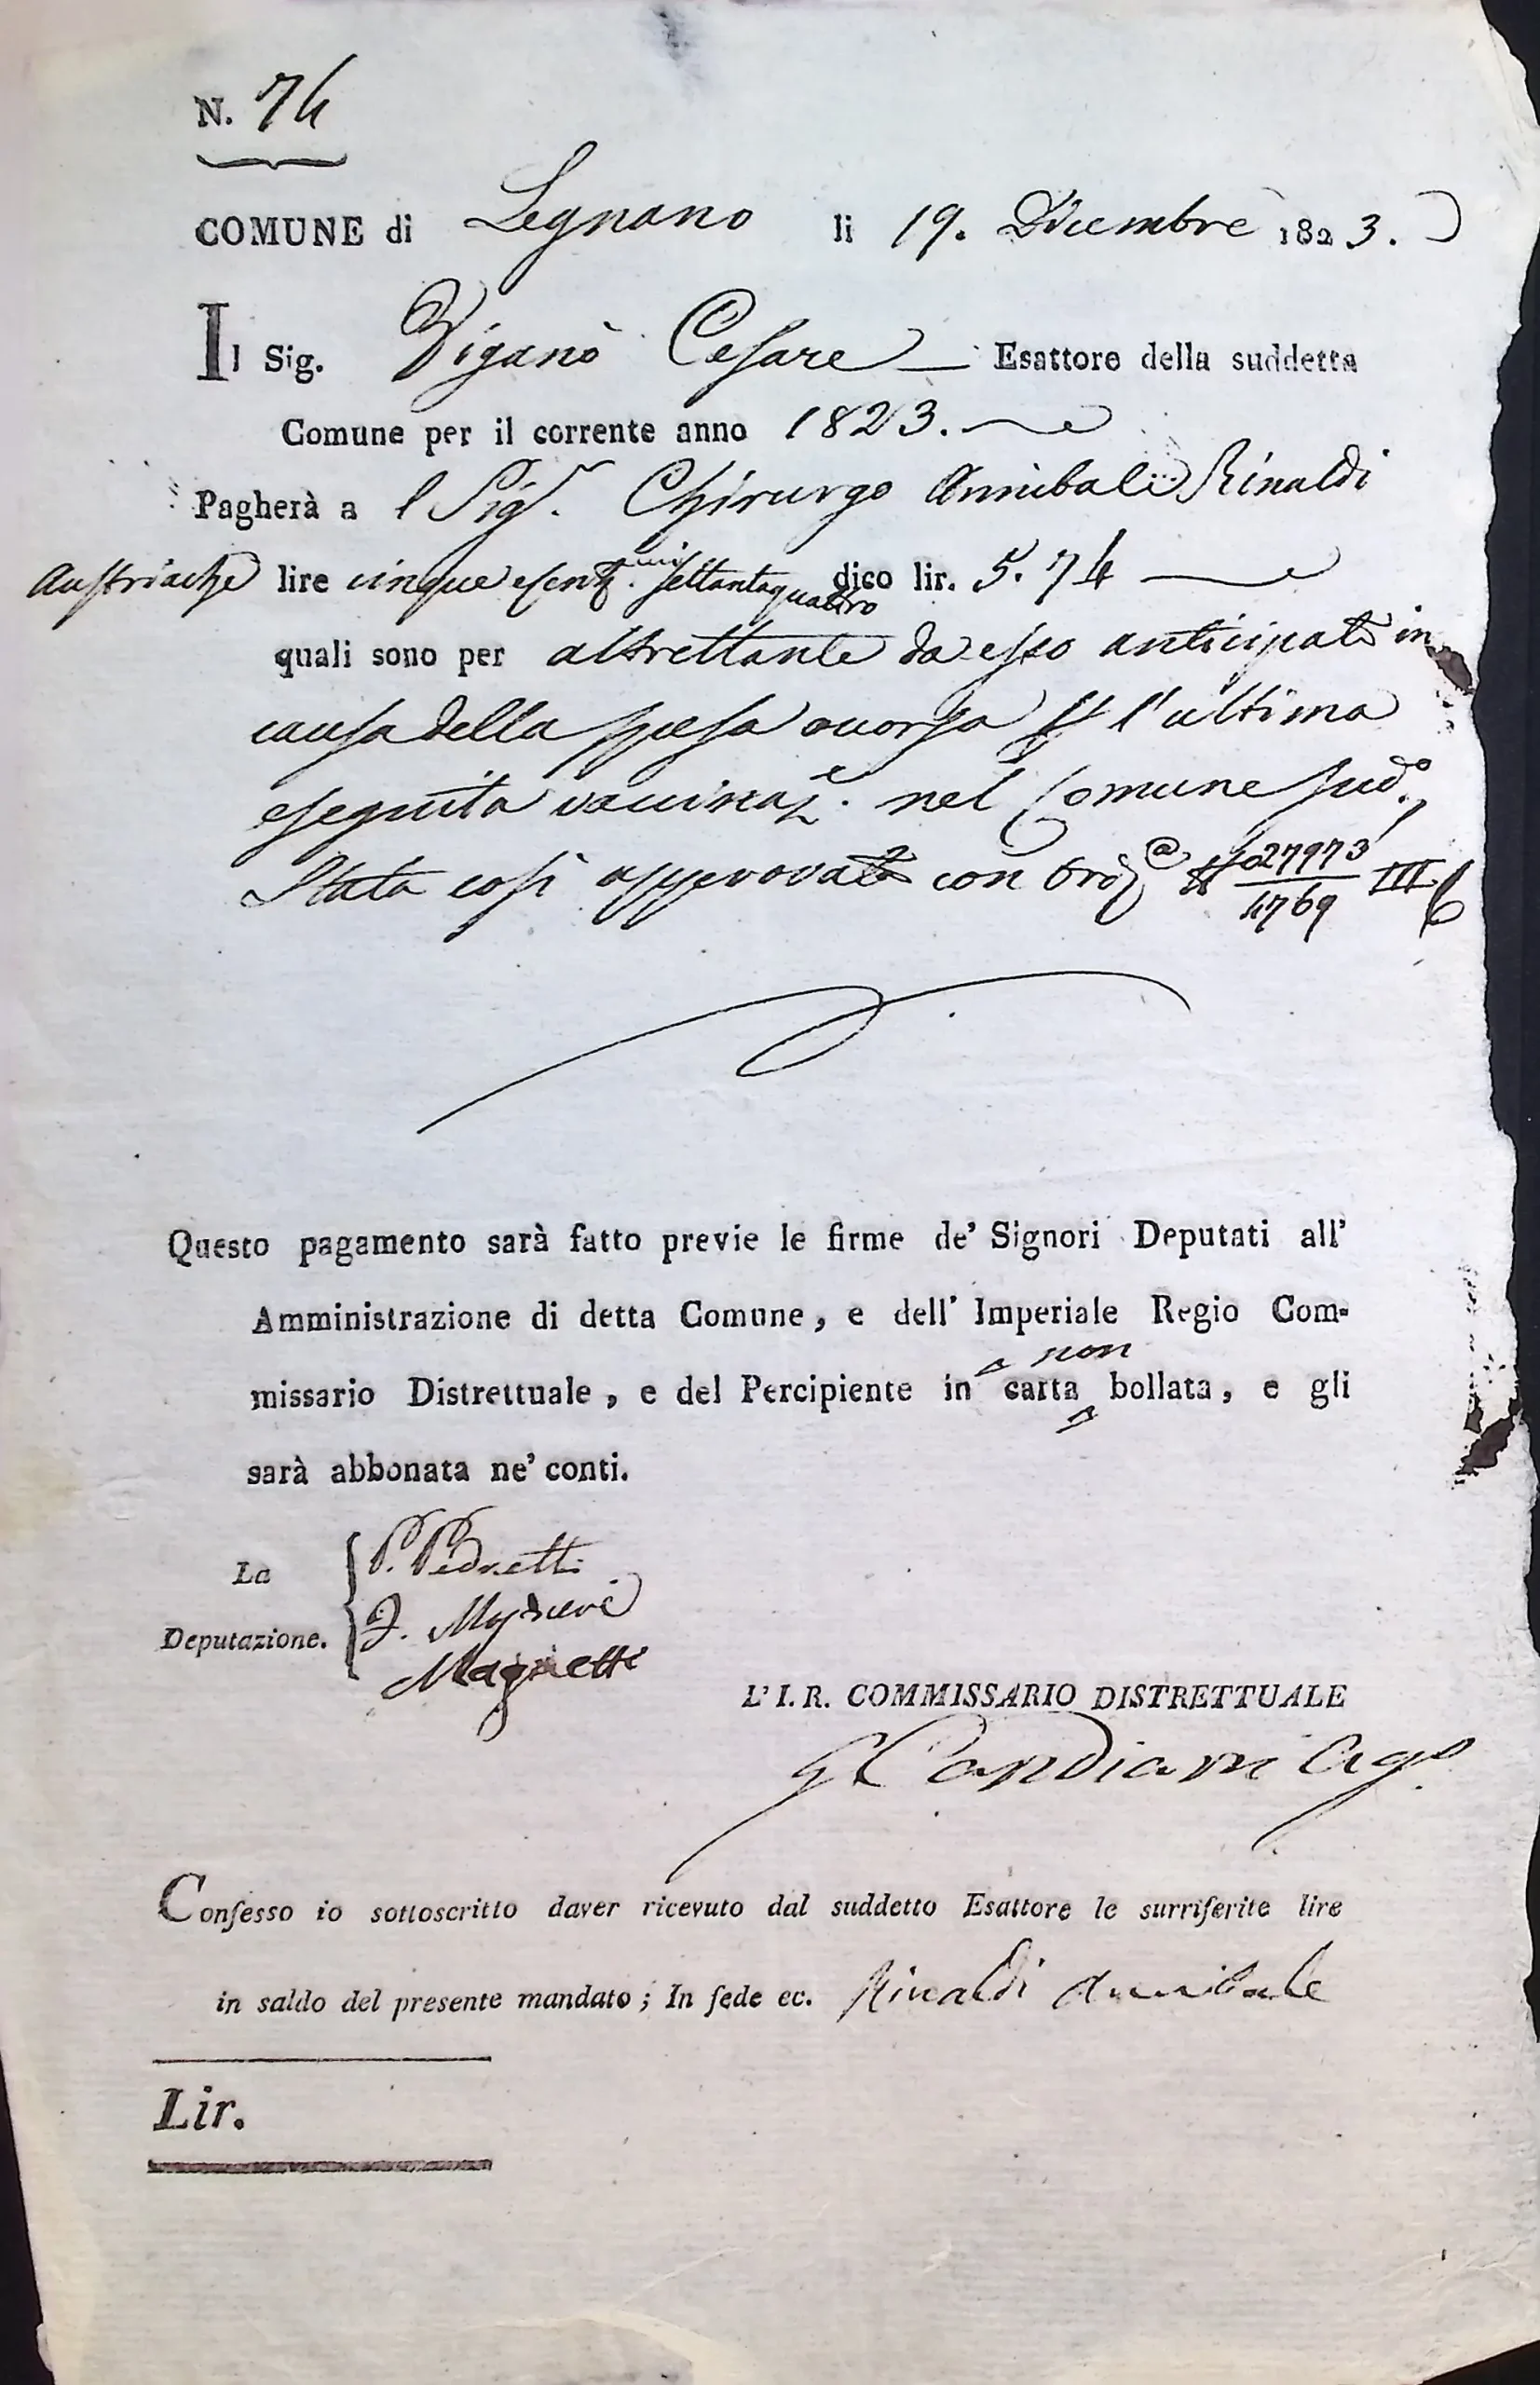 N. 74
COMUNE di Legnano li 19. Dicembre 1823.
Il Sig. Viganò Cesare — Esattore della suddetta
Comune per il corrente anno 1823.
Pagherà a l Sigr. Chirurgo Annibale Rinaldi
Austriache lire cinque e centmi. settantaquattro dico lir. 5.74
quali sono per altrettante da esso anticipate in
causa della spesa occorsa l'ultima
eseguita vaccinaze. nel Comune sudo.,
Stata così approvata con Ordza 27973/4769 III
Questo pagamento sarà fatto previe le firme de' Signori Deputati all'
Amministrazione di detta Comune, e dell' Imperiale Regio Com-
missario Distrettuale, e del Percipiente in carta non bollata, e gli
sarà abbonata ne' conti.
La Deputazione.
P. Pedretti
Magnetti
L' I. R. COMMISSARIO DISTRETTUALE
Candiani Aggo.
Confesso io sottoscritto daver ricevuto dal suddetto Esattore le surriferite lire
in saldo del presente mandato; In fede ec. Rinaldi Annibale
Lir.